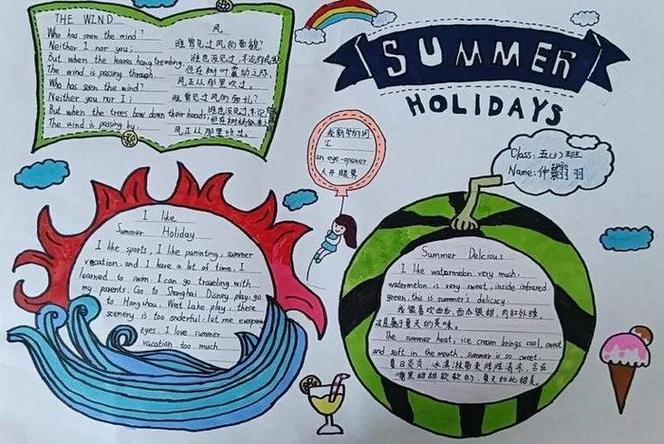 THE WIND
Who has seen the wind?
Neither I nor you;
But when the leaves hang trembling,
The wind is passing through.
Who has seen the wind?
Neither you nor I;
But when the trees bow down their heads,
The wind is passing by.
风
谁曾见过风的面貌?
谁也没见过,不论你或我
但在树叶震动之际,
风正从那里吹过。
谁曾见过风的面孔?
谁也没见过,不论
但在树梢
风正从那里吹过。
SUMMER
HOLIDAYS
我新学的词
汇
an eye-opener
大开眼界
Class: 五(3)班
Name: 仲 羽
I like
Summer Holiday
I like sports, I like painting, summer
vacation, and I have a lot of time, I
learned to swim. I can go traveling with
my parents, Go to Shanghai Disney play, go
to Hangzhou, West Lake play, there
scenery is too onderful, let me everyone
eyes, I love summer
vacation too much.
Summer Delicious
I like watermelon very much,
watermelon is very sweet, inside infrared
green, this is summer's delicacy.
我很喜欢西瓜,西瓜很甜,内红外绿,
这是属于夏天的美味。
The summer heat, ice cream brings cool, sweet
and soft in the mouth, summer is so sweet.
夏日炎炎,冰淇淋带来阵阵清凉,
嘴里甜甜软软的,夏天如此甜美。